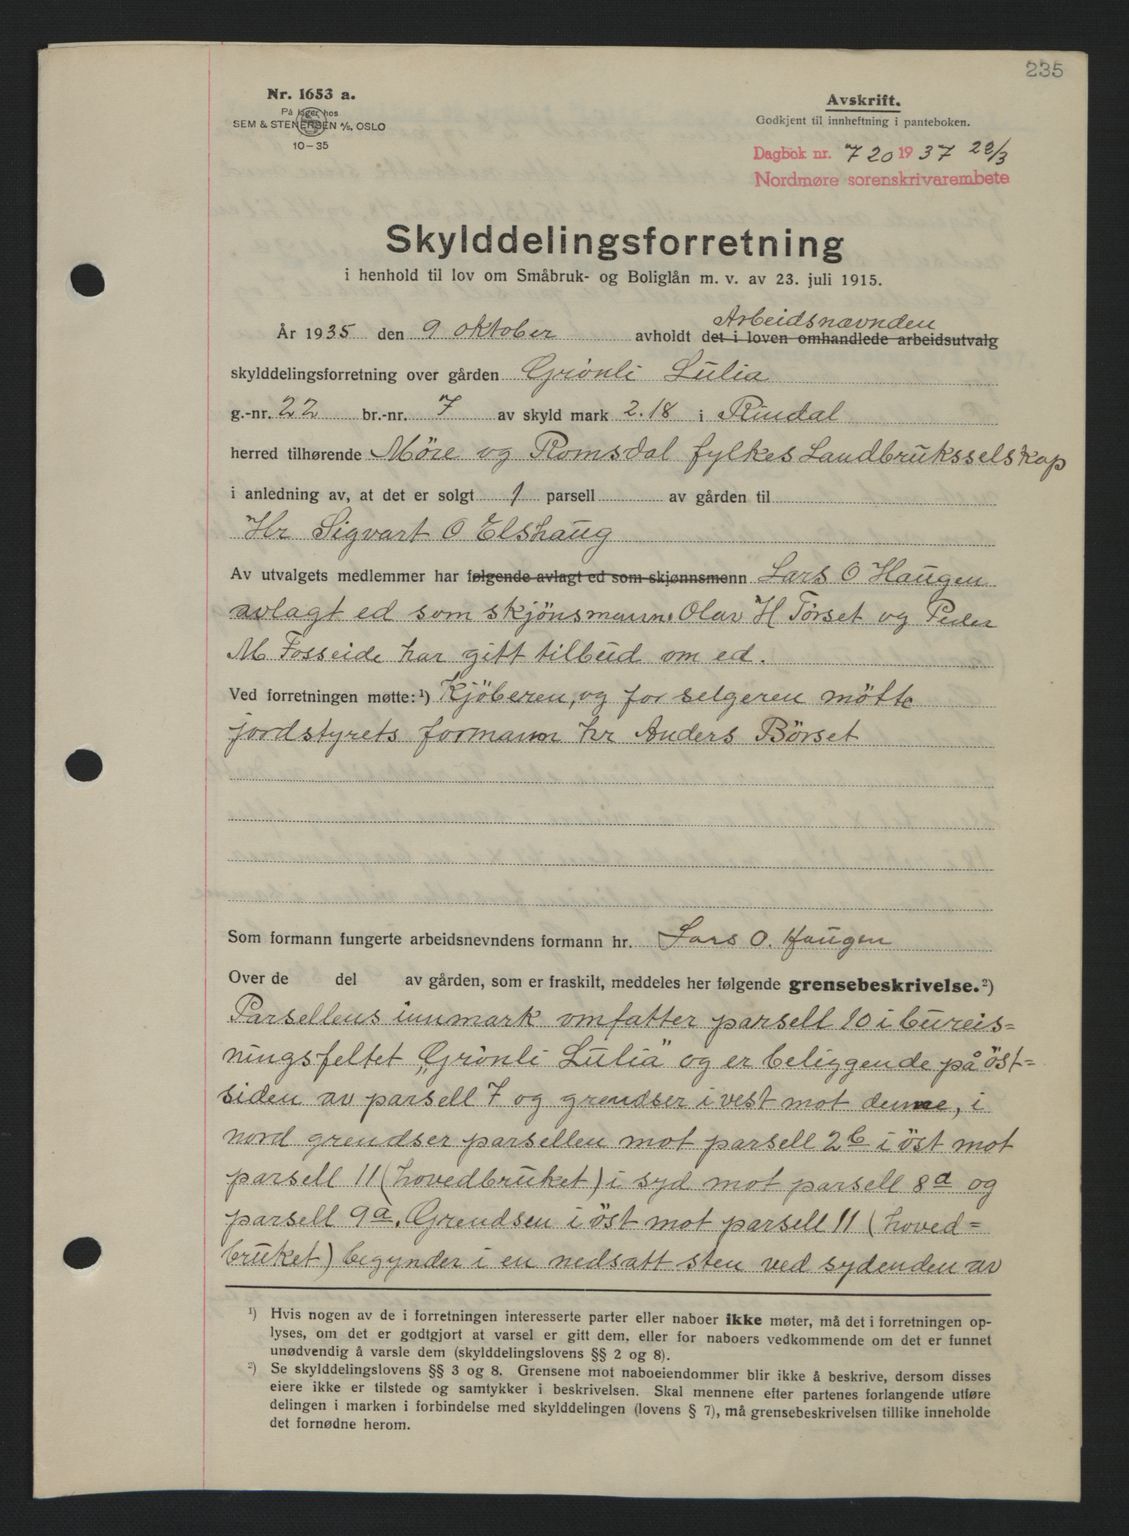 235
Nr. 1653 a.
På lager hos
SEM & STENERSEN A/S, OSLO
10-35
Avskrift.
Godkjent til innheftning i panteboken.
Dagbok nr. 720 1937 22/3
Nordmøre sorenskrivarembete
Skylddelingsforretning
i henhold til lov om Småbruk- og Boliglån m. v. av 23. juli 1915.
Arbeidsnævnden
År 1935 den 9 oktober avholdt det i loven omhandlede arbeidsutvalg
skylddelingsforretning over gården Grönli Lulia
g.-nr. 22 br.-nr. 7 av skyld mark 2.18 i Rindal
herred tilhørende Møre og Romsdal fylkes Landbruksselskap
i anledning av, at det er solgt 1 parsell av gården til
Hr Sigvart O Elshaug
Av utvalgets medlemmer har følgende avlagt ed som skjønnsmenn Lars O Haugen
avlagt ed som skjönsmann. Olav H Törset og Peder
M Fosseide har gitt tilbud om ed.
Ved forretningen møtte: ¹) Kjöberen, og for selgeren mötte
jordstyrets formann hr Anders Börset
Som formann fungerte arbeidsnevndens formann hr. Lars O. Haugen
Over de del av gården, som er fraskilt, meddeles her følgende grensebeskrivelse.²)
Parsellens innmark omfatter parsell 10 i bureis=
ningsfeltet „Grönli Lulia” og er beliggende på öst-=
siden av parsell 7 og grendser i vest mot denne, i
nord grendser parsellen mot parsell 2b i öst mot
parsell 11 (hovedbruket) i syd mot parsell 8a og
parsell 9a. Grendsen i öst mot parsell 11 (hoved=
bruket) begynder i en nedsatt sten ved sydenden av
¹) Hvis nogen av de i forretningen interesserte parter eller naboer ikke møter, må det i forretningen op-
lyses, om det er godtgjort at varsel er gitt dem, eller for naboers vedkommende om det er funnet
unødvendig å varsle dem (skylddelingslovens §§ 2 og 8).
²) Se skylddelingslovens §§ 3 og 8. Grensene mot naboeiendommer blir ikke å beskrive, dersom disses
eiere ikke er tilstede og samtykker i beskrivelsen. Skal mennene efter partenes forlangende utføre
delingen i marken i forbindelse med skylddelingen (lovens § 7), må grensebeskrivelsen tillike inneholde
det fornødne herom.